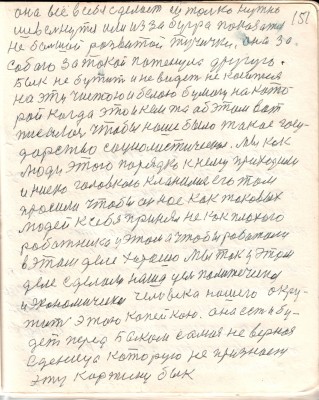 она все себя сделает ей только нужно
шевелкнуть или из за бугра показать
не большой развитой тучичке, она за
151
собою за такой потянула другого.
Бык не бутит и не видет не копится
на эту чистою и белою бумагу на кото
рой когда это и кем то об этом вот
писался чтобы наше было такое госу
дарство социалистическое. Мы как
люди этого порядка к нему приходили
и низко головкою кланялися его там
просили чтобы он нас как таковых
людей к себя принял не как плохого
работника и этом а чтобы работали
в этом деле хорошо мы так и этом
деле сделали наша цель политическа
и экономически человека нашего окру
жит этою копейкою. она есть и бу
дет перед Быком самая не верная
сденица которую не признает
эту картину бык